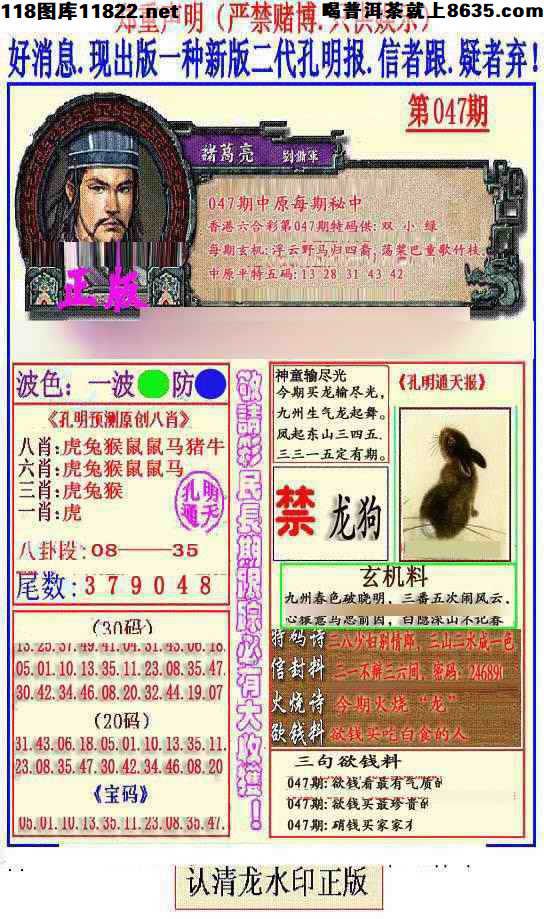 118图库11822.net
喝普洱茶就上8635.com
郑重声明（严禁赌博.只供娱乐）
好消息.现出版一种新版二代孔明报.信者跟.疑者弃!
第047期
諸葛亮 劉備軍
047期中原每期秘中
香港六合彩第047期特码供: 双 小 绿
每期玄机:浮云野马归四裔,荡桨巴童歌竹枝.
中原平特五码: 13 28 31 43 42
正版
波色: 一波 防
《孔明预测原创八肖》
八肖:虎兔猴鼠鼠马猪牛
六肖:虎兔猴鼠鼠马
三肖:虎兔猴
一肖:虎
孔明通天
八卦段: 08——35
尾数: 3 7 9 0 4 8
(30码)
13.25.37.49.41.04.31.43.06.18.
05.01.10.13.35.11.23.08.35.47.
30.42.34.46.08.20.32.44.19.07
(20码)
31.43.06.18.05.01.10.13.35.11.
23.08.35.47.30.42.34.46.08.20
《宝码》
05.01.10.13.35.11.23.08.35.47.
敬請彩民長期跟踪必有大收獲!
神童输尽光
今期买龙输尽光,
九州生气龙起舞。
凤起东山三四五.
三三一五定有期。
《孔明通天报》
禁 龙狗
玄机料
九州春色破晓明, 三番五次闹风云.
心猿意马思前因, 白隐深山不记春
特码诗 二八少妇别情郎, 三山二水成一色
信封料 三一不解三六问, 密码: 24689
火烧诗 今期火烧“龙”
欲钱料 欲钱买吃白食的人
三句欲钱料
047期: 欲钱看最有气质的
047期: 欲钱买最珍贵的
047期: 硝钱买家家
认清龙水印正版